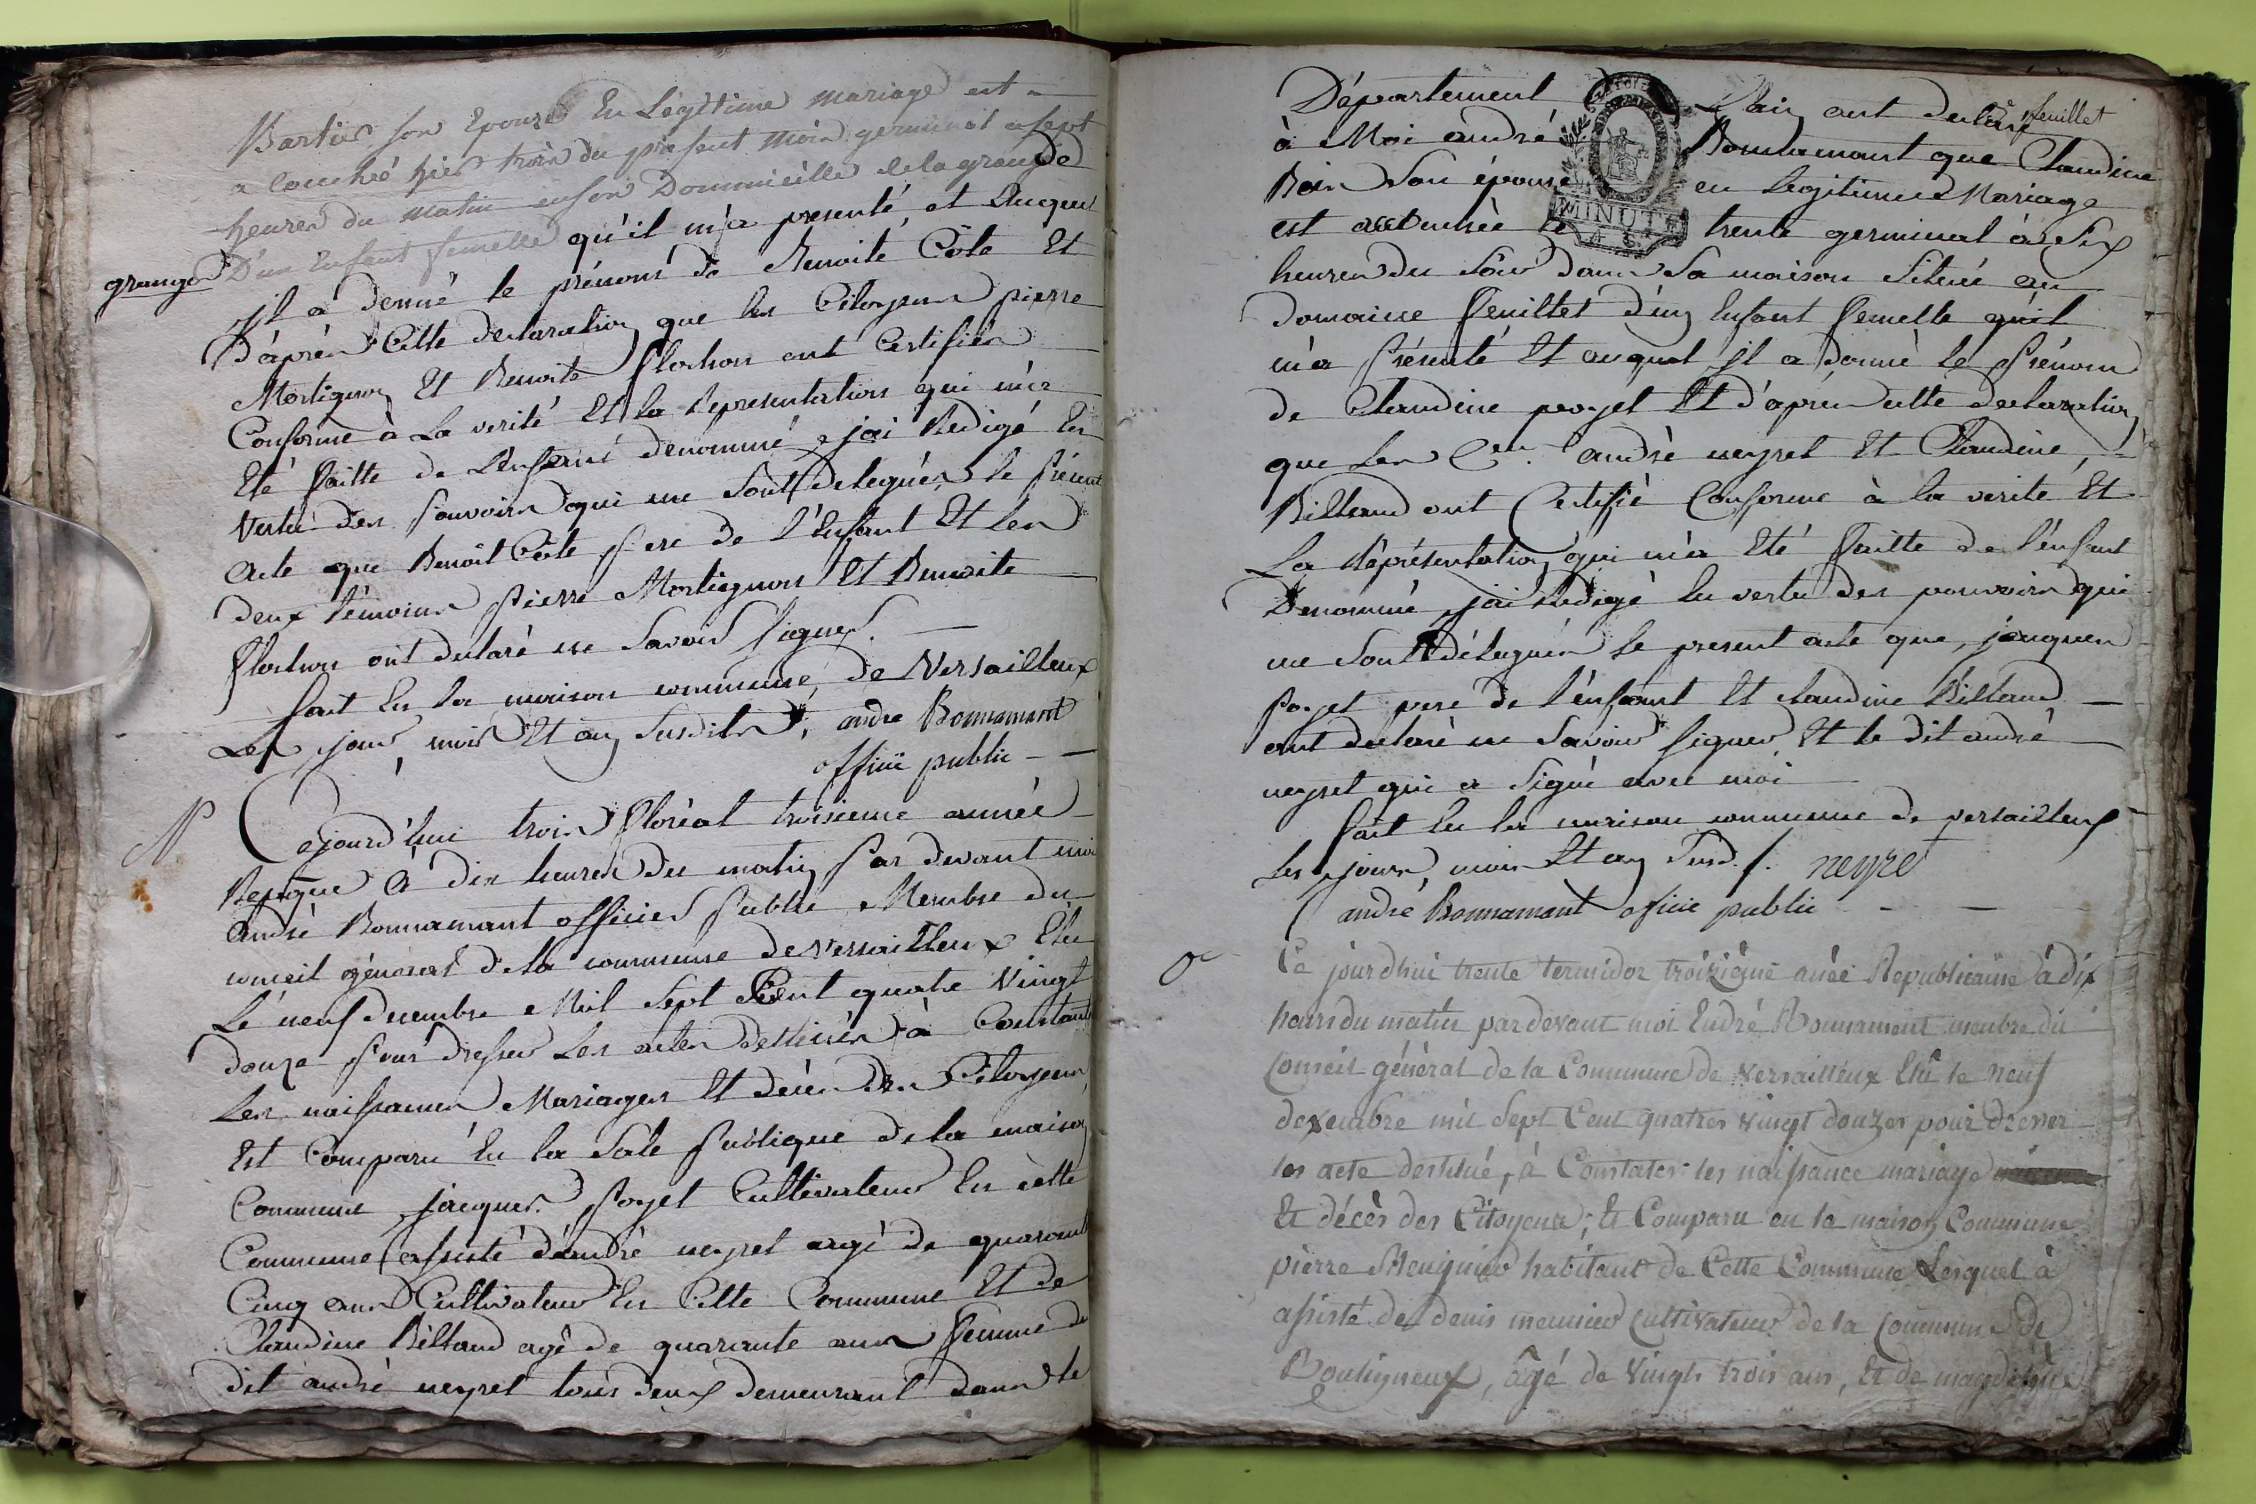 Bartier son Epouze En Légitime mariage est
a Couché hier trois du present mois germinal a sept
heures du matin en son Dommicille de la grande
grange D'un Enfant femelle qu'il m'a presenté, et Auquel
jl a donné le prénoms de Benoite Côte Et
D'aprés Cette declaration que les Citoyens pierre
Mortignon Et Benoite flochon ont Certifiés
Conforme à La verité Et la Representation qui m'a
Eté faitte de L'enfant denommé jai Redigé En
Vertu des pouvoirs qui me sont delegués le présent
Acte que Benoit Côte pere de l'Enfant Et les
deux témoins pierre Mortignon Et Benoite
flochon ont declaré ne Savoir signer.
fait En la maison commune de Versailleux
Les jour, mois Et an Susdits, andre Bonnamant
officie public
N Cejourd'hui trois floréal troisieme année
Repuque à dix heures du matin par devant moi
André Bonnamant officier public Membre du
conseil général de la commune de Versailleux Elu
Le neuf decembre Mil Sept Cent quatre Vingt
douze pour dresser Les actes destinés à Constater
Les naissances Mariages Et décés des Citoyens
Est Comparu En la Sale publique de la maison
Commune jacques poyet Cultivateur En cette
Commune assisté d'andré neyret agé de quarante
Cinq ans Cultivateur En Cette Commune Et de
Claudine Billaud agé de quarante ans femme du
dit andré neyret tous deux demeurant dans le
Département Dain ont declaré feuillet
à Moi andré Bonnamant que Claudine
Bois Son épouse en Legitime Mariage
MINUTE
est accouchée le trente germinal à Six
heures du Soir dans Sa maison Située au
domaine feuillet d'un Enfant femelle qu'il
m'a présenté Et auquel jl a donné le prénom
de Claudine poyet Et d'aprés cette declaration
que Les Cen. andré neyret Et Claudine
Billaud ont Certifié Conforme à la verité Et
La Réprésentation qui m'a Eté faitte de l'énfant
Denommé jai Redigé En vertu des pouvoirs qui
me Sont délegués le present acte que, jacques
poyet pere de l'énfant Et claudine Billaud
ont declaré ne Savoir signer Et le dit andré
neyret qui a Signé avec moi
fait En la maison commune de versailleux
Les jours, mois Et an Susd. /. neyret
andré Bonnamant oficie public
Ce jourdhui trente termidor troizième anée Republicaine à dix
heurs du matin pardevant moi Endré Bonnament membre du
Conseil général de la Commune de Versailleux Elû le neuf
dexembre mil Sept Cent quatres Vingt douzes pour dresser
les acte destiné, à Constater les naissance mariage
Et décès des Citoyens; Et Comparu en la maison Commune
pierre habitant de Cette Commune Lesquel à
assisté de denis meunier Cultivateur de la Commune de
Boutigneux, âgé de Vingts trois ans, Et de